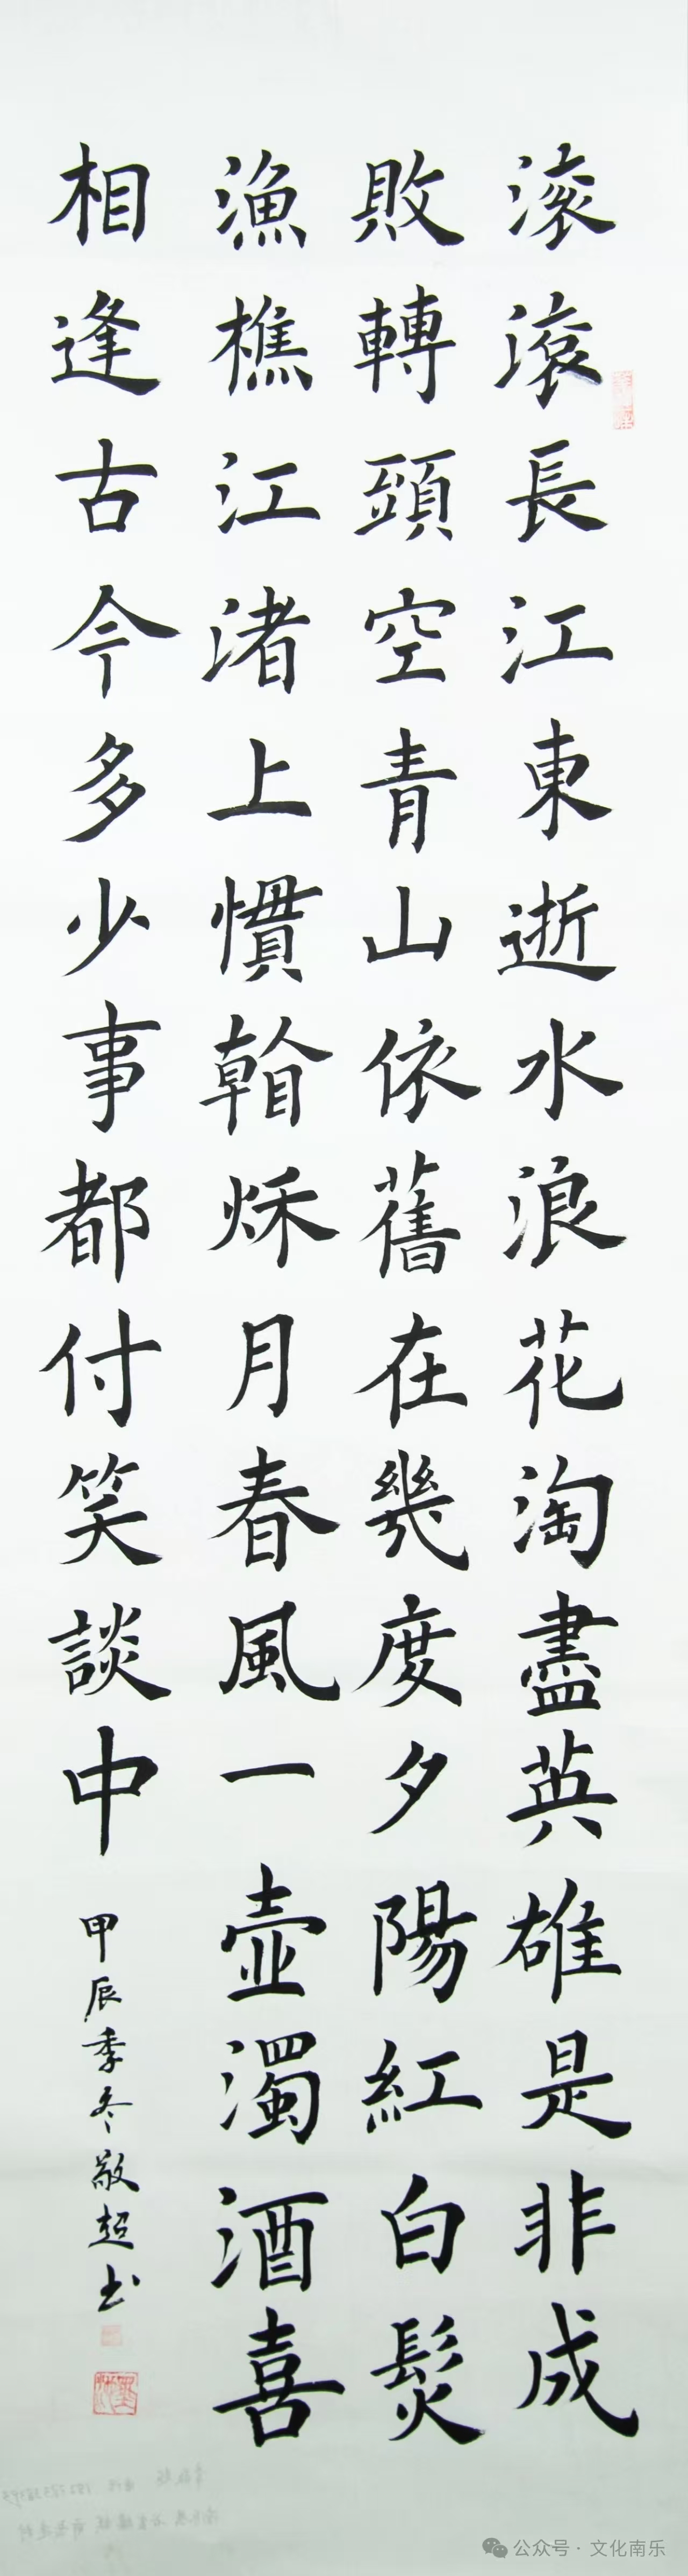 滾滾長江東逝水浪花淘盡英雄是非成
敗轉頭空青山依舊在幾度夕陽紅白髮
漁樵江渚上慣看秌月春風一壺濁酒喜
相逢古今多少事都付笑談中
甲辰季冬敬超书
公众号·文化南乐